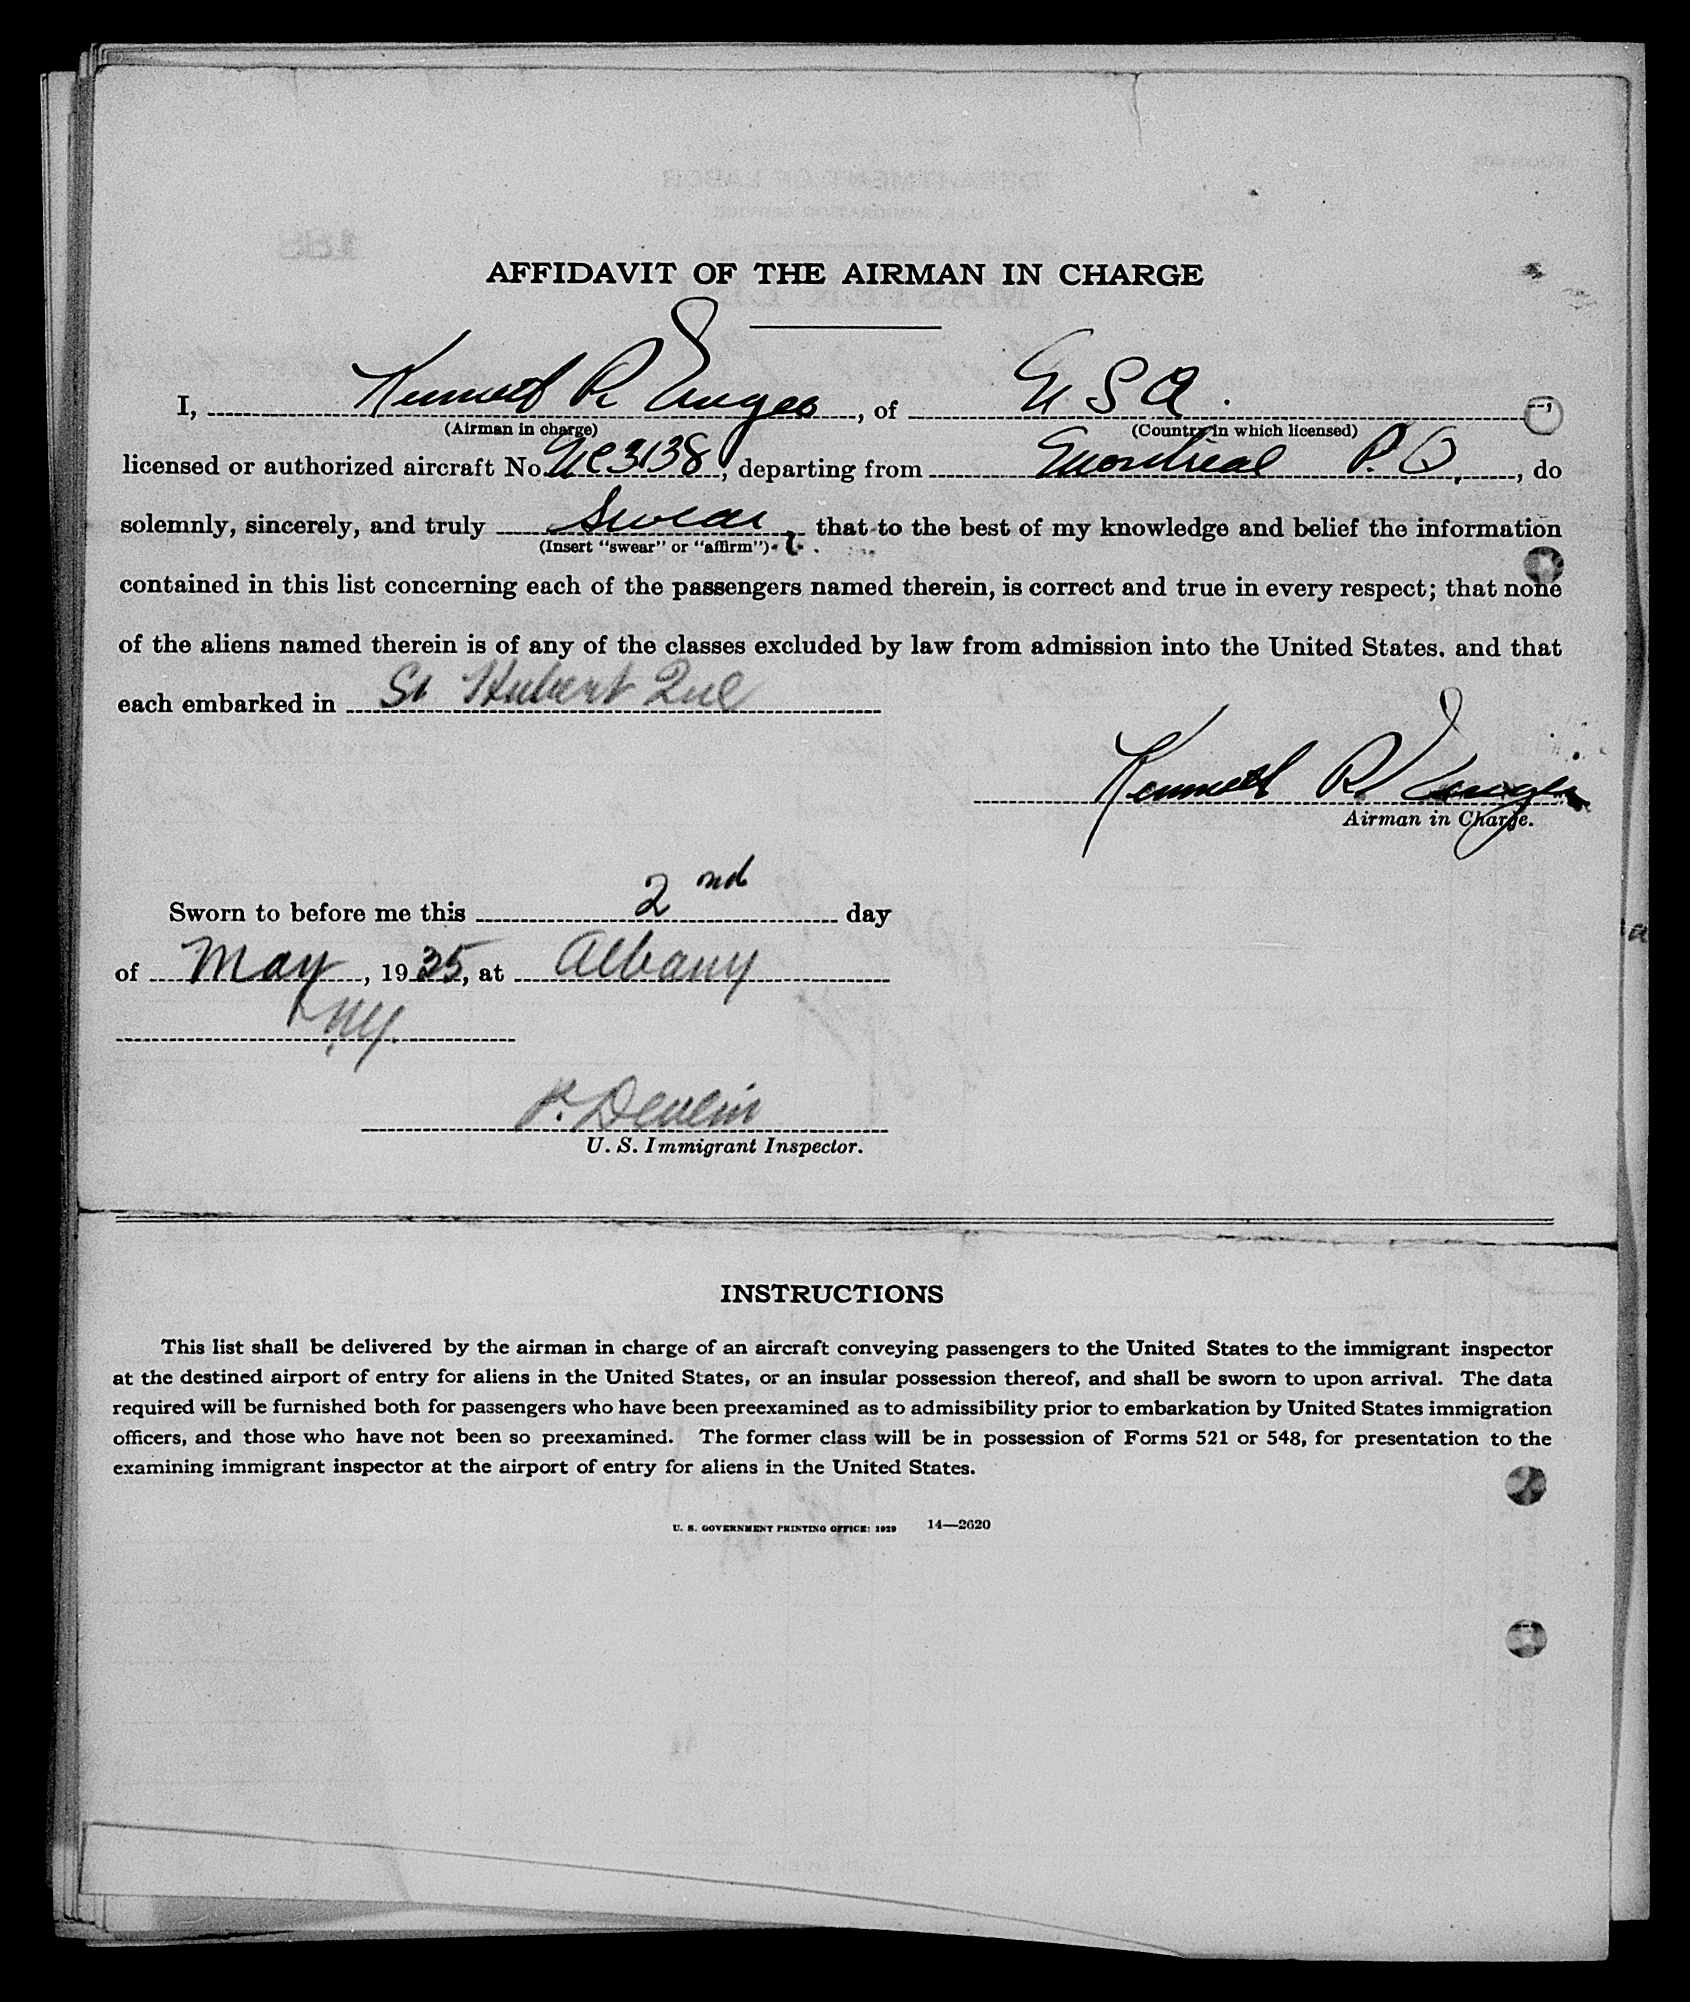 AFFIDAVIT OF THE AIRMAN IN CHARGE
I, Kenneth R Unger, of U S A.
(Airman in charge) (Country in which licensed)
licensed or authorized aircraft No. NC 3138, departing from Montreal P. Q., do
solemnly, sincerely, and truly swear, that to the best of my knowledge and belief the information
(Insert "swear" or "affirm")
contained in this list concerning each of the passengers named therein, is correct and true in every respect; that none
of the aliens named therein is of any of the classes excluded by law from admission into the United States, and that
each embarked in St Hubert Que
Kenneth R Unger
Airman in Charge.
Sworn to before me this 2nd day
of May, 1935, at Albany
N.Y.
P. Devlin
U. S. Immigrant Inspector.
INSTRUCTIONS
This list shall be delivered by the airman in charge of an aircraft conveying passengers to the United States to the immigrant inspector
at the destined airport of entry for aliens in the United States, or an insular possession thereof, and shall be sworn to upon arrival. The data
required will be furnished both for passengers who have been preexamined as to admissibility prior to embarkation by United States immigration
officers, and those who have not been so preexamined. The former class will be in possession of Forms 521 or 548, for presentation to the
examining immigrant inspector at the airport of entry for aliens in the United States.
U. S. GOVERNMENT PRINTING OFFICE: 1929 14—2620